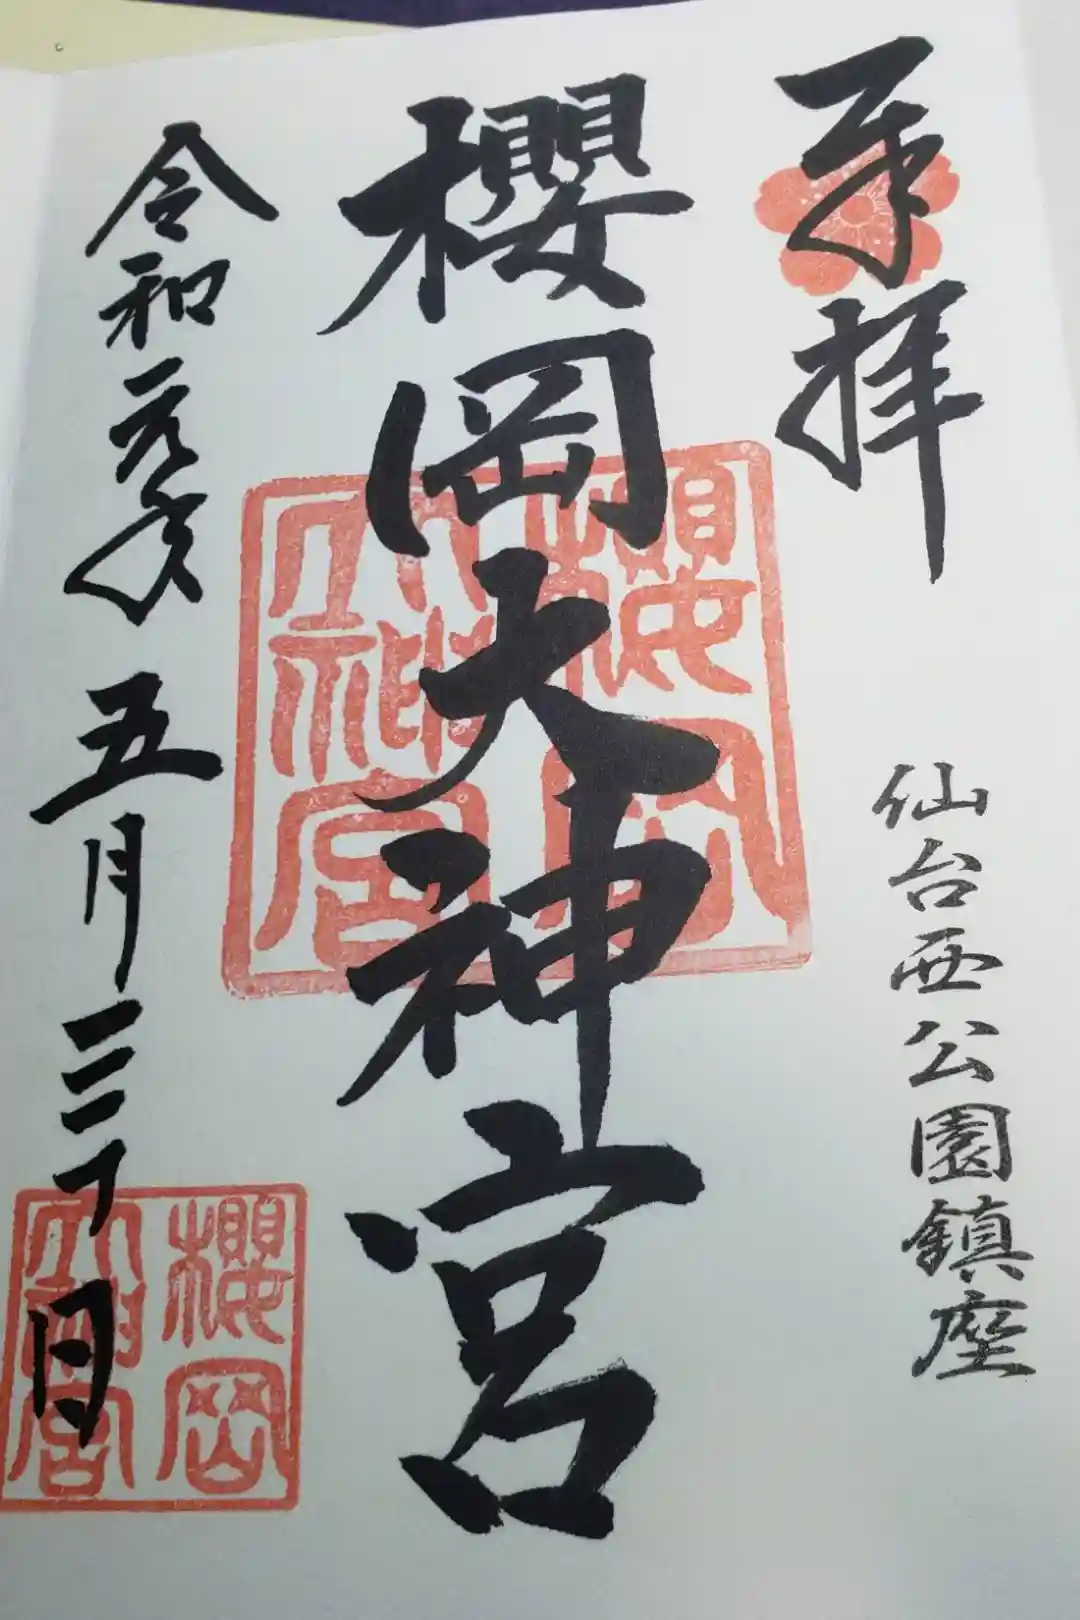 奉拝
仙台西公園鎮座
櫻岡大神宮
櫻岡
大神宮
令和元年五月三十日
櫻岡
大神宮